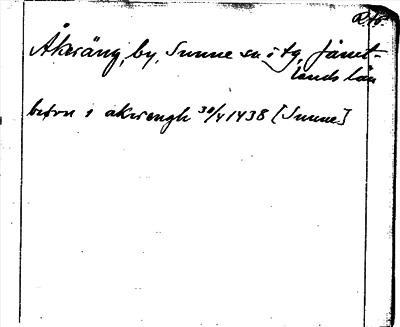 Åkeräng, by, Sunne sn i tg, Jämt-
lands län
i akrengh 30/4 1438 [Sunne]